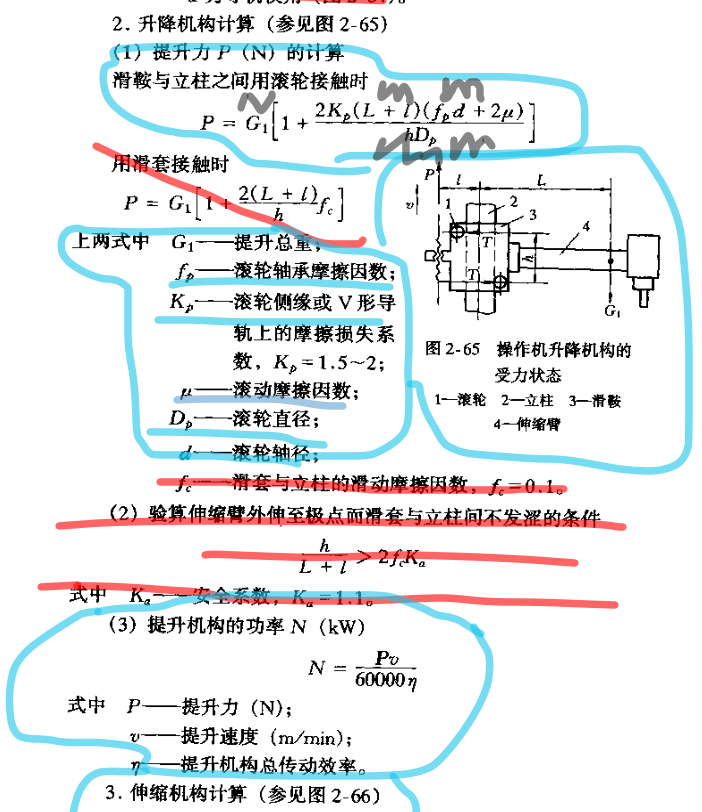 2. 升降机构计算（参见图 2-65）
(1) 提升力 P（N）的计算
滑鞍与立柱之间用滚轮接触时
N m m
P = G₁[1 + 2Kₚ(L + l)(fₚd + 2μ) / hDₚ]
m
用滑套接触时
P = G₁[1 + 2(L + l) / h f_c]
上两式中 G₁——提升总重；
fₚ——滚轮轴承摩擦因数；
Kₚ——滚轮侧缘或 V 形导
轨上的摩擦损失系
数，Kₚ = 1.5~2；
μ——滚动摩擦因数；
Dₚ——滚轮直径；
d——滚轮轴径；
f_c——滑套与立柱的滑动摩擦因数，f_c = 0.1。
P l L
v 1 2 3 4
T h
T
G₁
图 2-65 操作机升降机构的
受力状态
1—滚轮 2—立柱 3—滑鞍
4—伸缩臂
(2) 验算伸缩臂外伸至极点而滑套与立柱间不发涩的条件
h / (L + l) > 2f_cKₐ
式中 Kₐ——安全系数，Kₐ = 1.1。
(3) 提升机构的功率 N（kW）
N = Pv / 60000η
式中 P——提升力（N）；
v——提升速度（m/min）；
η——提升机构总传动效率。
3. 伸缩机构计算（参见图 2-66）